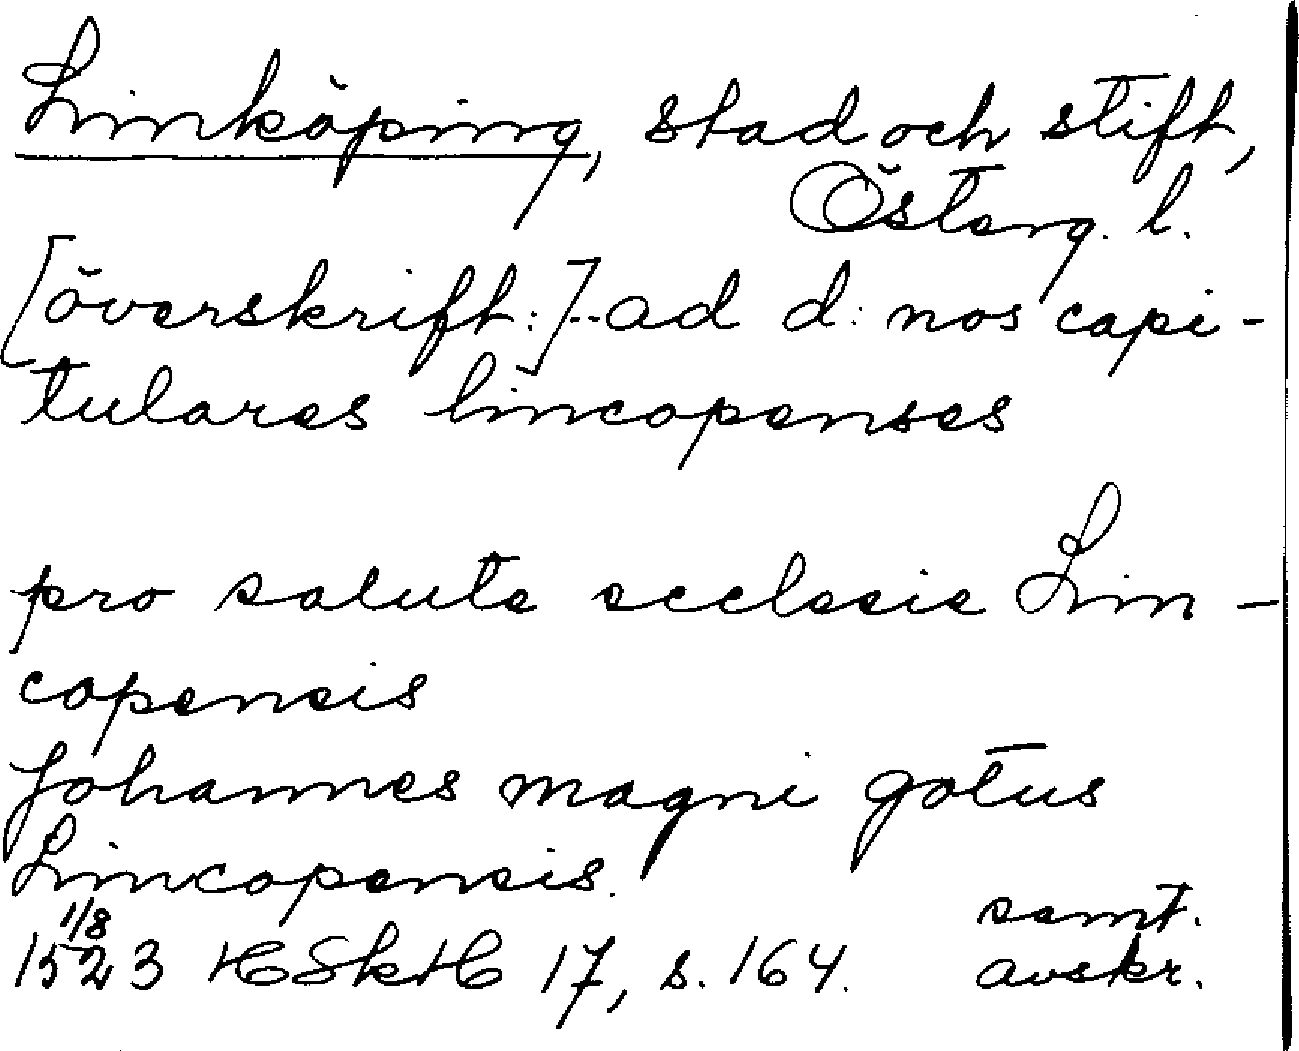 Linköping, stad och stift,
Österg. l.
[överskrift:]--ad d: nos capi-
tulares lincopenses
pro salute ecclesie Lin-
copensis
Johannes magni gotus
Lincopensis.
1/8
1523 HSkH 17, s. 164.
samt.
avskr.